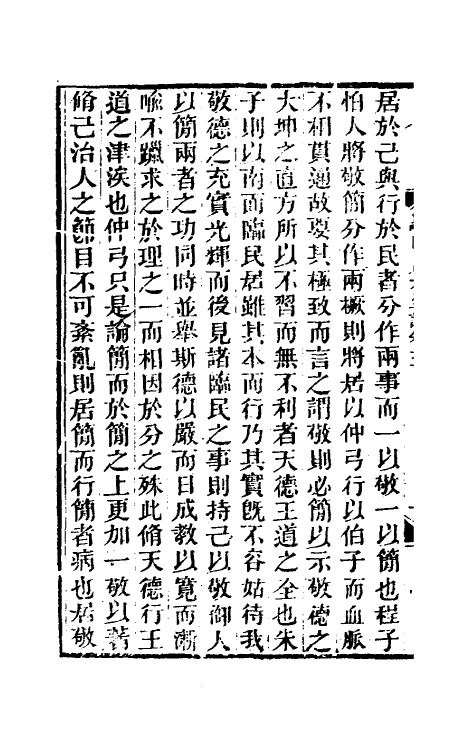 居於己與行於民者分作兩事而一以敬一以簡也程子
怕人將敬簡分作兩橛則將居以仲弓行以伯子而血脈
不相貫通故要其極致而言之謂敬則必簡以示敬德之
大坤之直方所以不習而無不利者天德王道之全也朱
子則以南面臨民居雖其本而行乃其實旣不容姑待我
敬德之充實光輝而後見諸臨民之事則持己以敬御人
以簡兩者之功同時並舉斯德以嚴而日成敎以寬而漸
喻不躐求之於理之一而相因於分之殊此脩天德行王
道之津涘也仲弓只是論簡而於簡之上更加一敬以著
脩己治人之節目不可紊亂則居簡而行簡者病也居敬